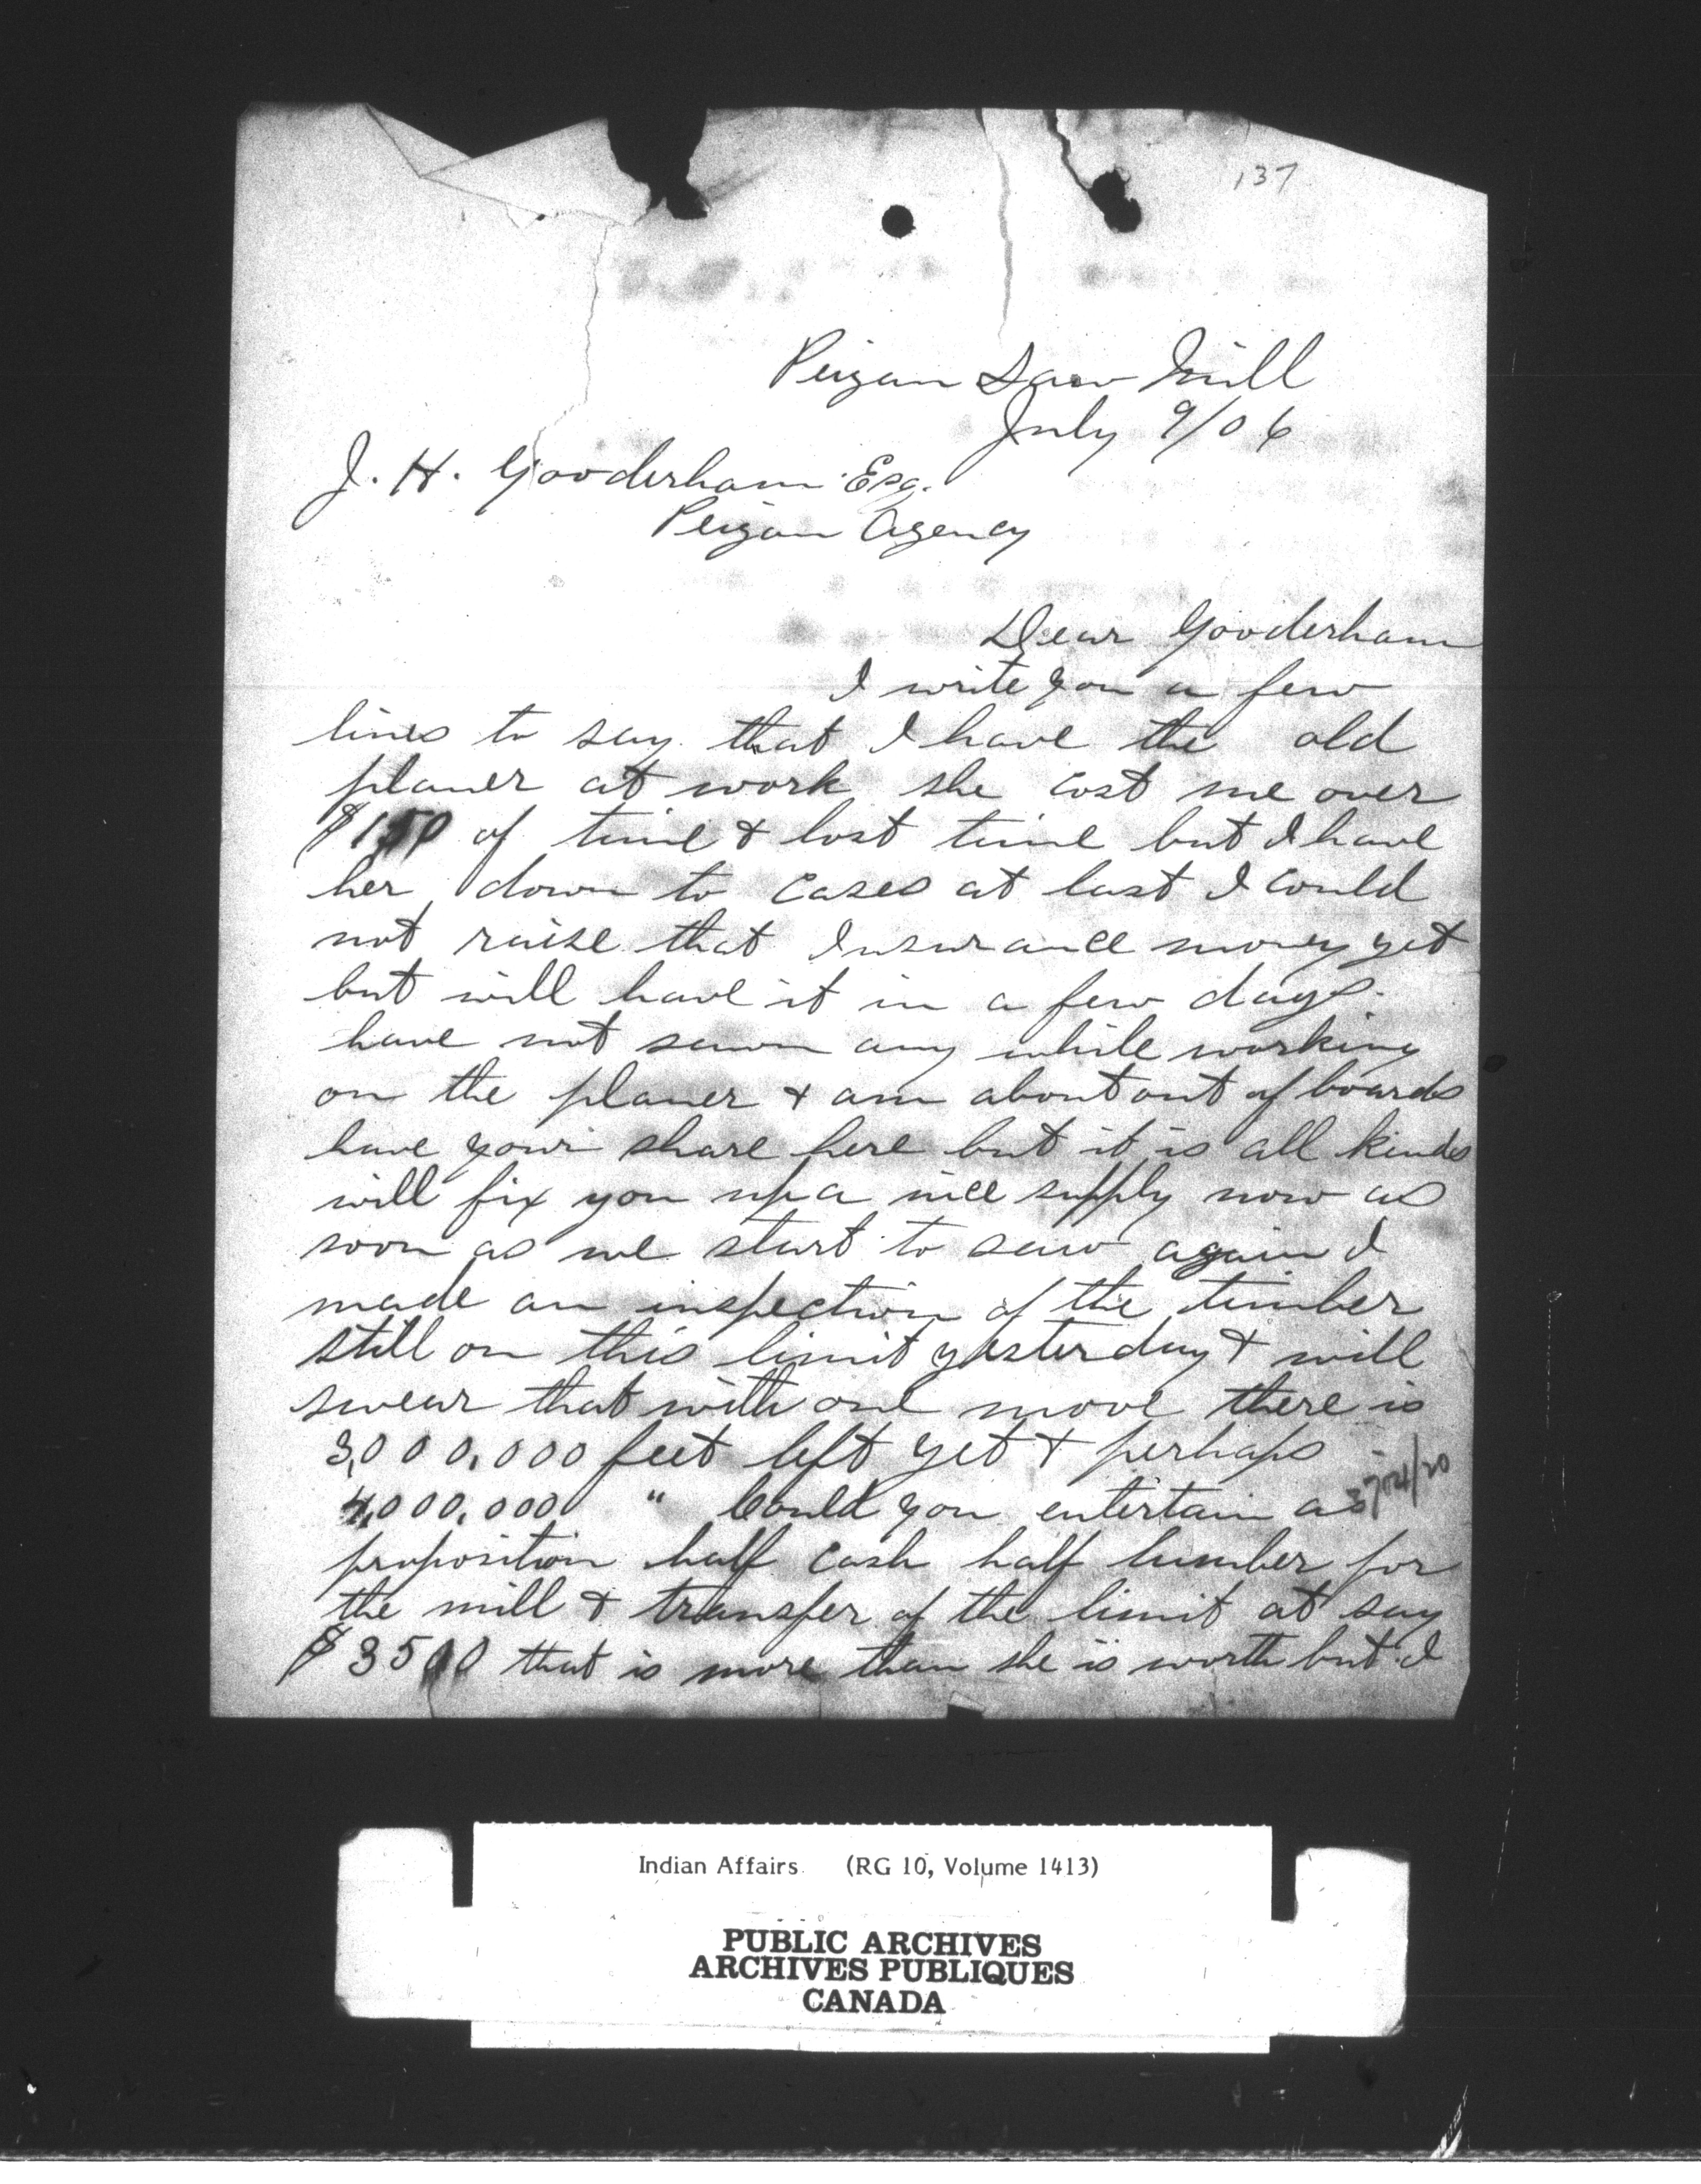 137
Peigan Saw Mill
July 9/06
J. H. Gooderham Esq.
Peigan Agency
Dear Gooderham
I write you a few
lines to say that I have the old
planer at work she cost me over
$150 of time & lost time but I have
her down to cases at last I could
not raise that Insurance money yet
but will have it in a few days.
have not sawn any while working
on the planer & am about out of boards
have your share here but it is all kinds
will fix you up a nice supply now as
soon as we start to saw again I
made an inspection of the timber
still on this limit yesterday & will
swear that with one move there is
3,000,000 feet left yet & perhaps
4,000,000 " Could you entertain a
proposition half cash half lumber for
the mill & transfer of the limit at say
$3500 that is more than she is worth but I
Indian Affairs. (RG 10, Volume 1413)
PUBLIC ARCHIVES
ARCHIVES PUBLIQUES
CANADA